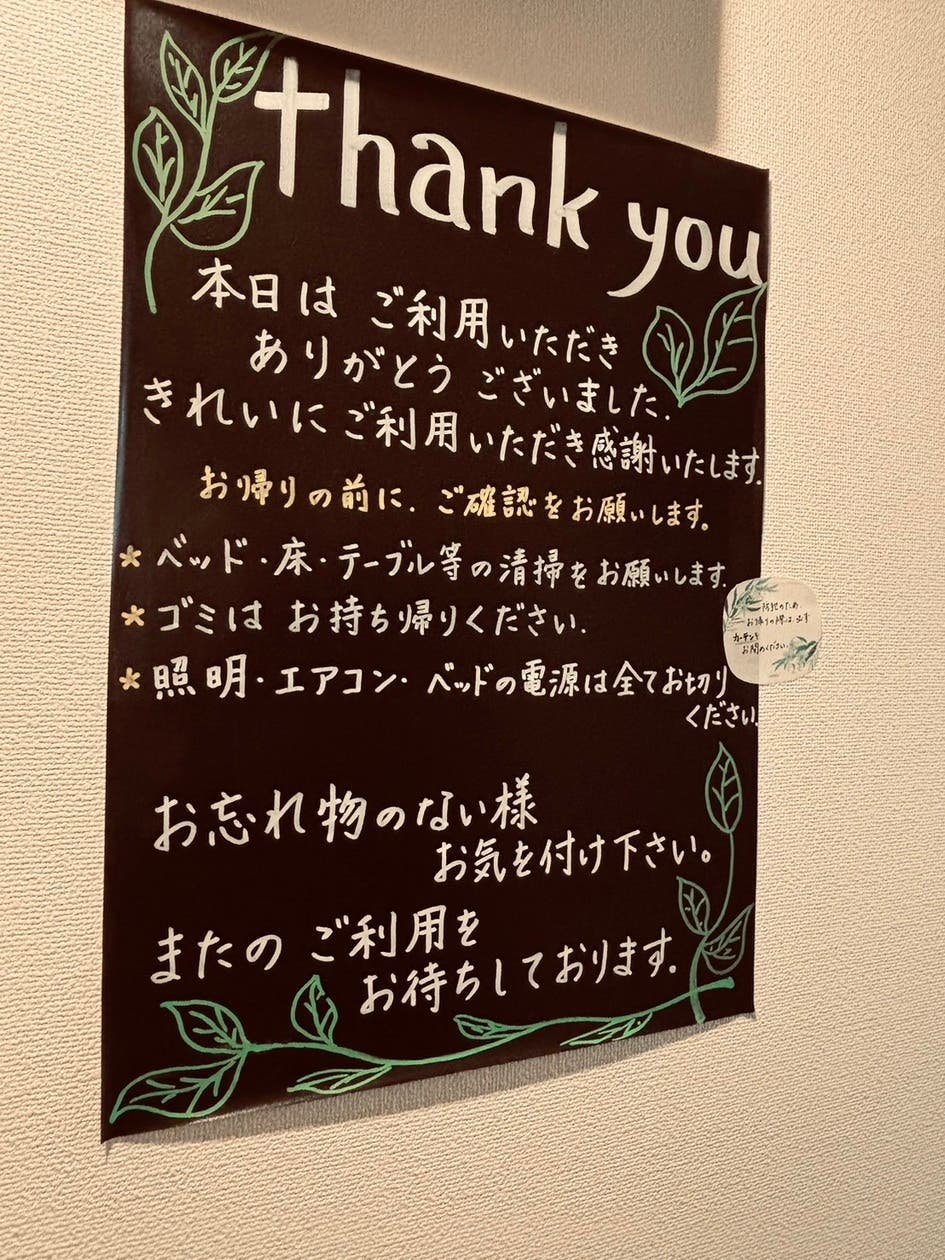 thank you
本日は ご利用いただき
ありがとう ございました.
きれいに ご利用いただき感謝いたします.
お帰りの前に. ご確認をお願いします。
* ベッド・床・テーブル等の清掃をお願いします.
* ゴミは お持ち帰りください.
* 照明・エアコン・ベッドの電源は全てお切り
ください.
お忘れ物のない様
お気を付け下さい。
またの ご利用を
お待ちしております.
防犯のため
お帰りの際は、必ず
カーテンを
お閉めください。